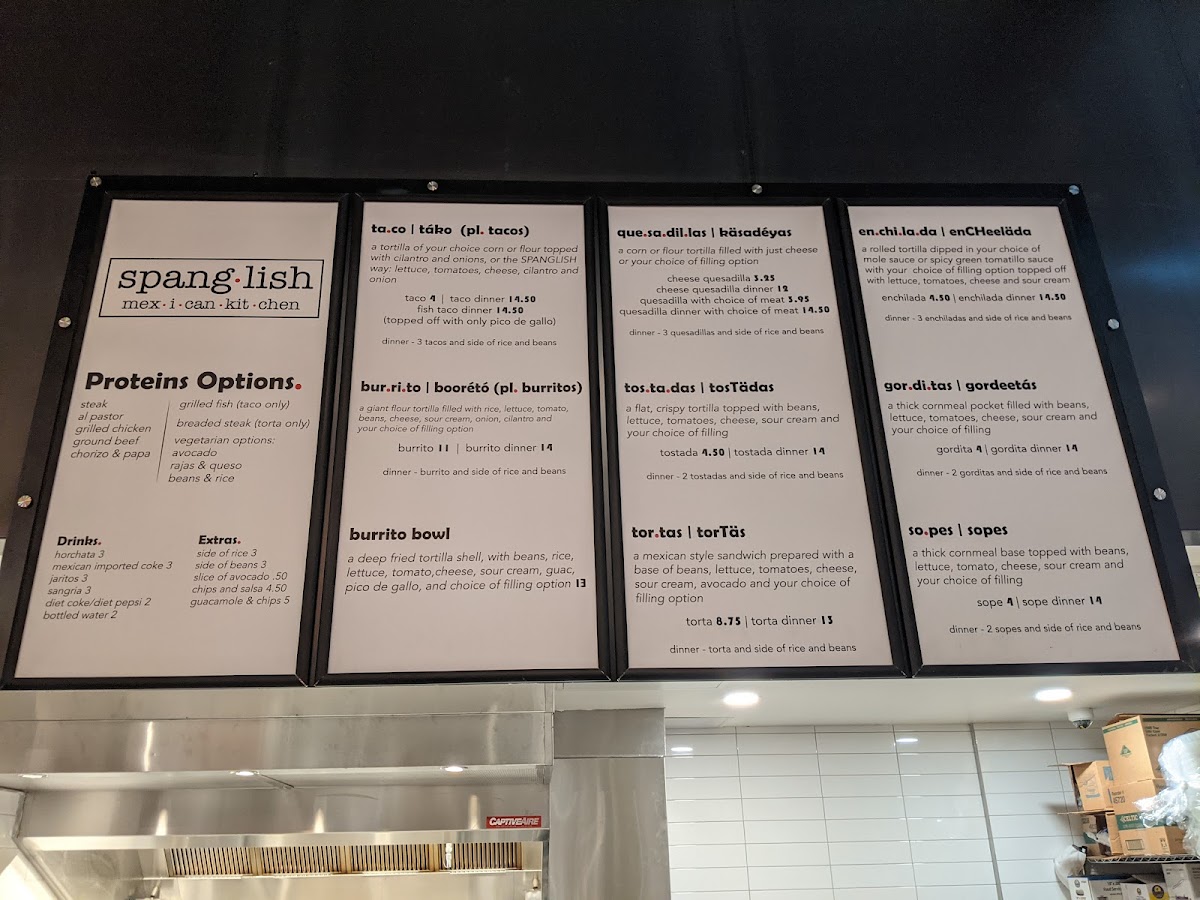 spang·lish
mex·i·can·kit·chen
Proteins Options.
steak
al pastor
grilled chicken
ground beef
chorizo & papa
grilled fish (taco only)
breaded steak (torta only)
vegetarian options:
avocado
rajas & queso
beans & rice
Drinks.
horchata 3
mexican imported coke 3
jaritos 3
sangria 3
diet coke/diet pepsi 2
bottled water 2
Extras.
side of rice 3
side of beans 3
slice of avocado .50
chips and salsa 4.50
guacamole & chips 5
ta.co | táko (pl. tacos)
a tortilla of your choice corn or flour topped
with cilantro and onions, or the SPANGLISH
way: lettuce, tomatoes, cheese, cilantro and
onion
taco 4 | taco dinner 14.50
fish taco dinner 14.50
(topped off with only pico de gallo)
dinner - 3 tacos and side of rice and beans
bur.ri.to | boorétó (pl. burritos)
a giant flour tortilla filled with rice, lettuce, tomato,
beans, cheese, sour cream, onion, cilantro and
your choice of filling option
burrito 11 | burrito dinner 14
dinner - burrito and side of rice and beans
burrito bowl
a deep fried tortilla shell, with beans, rice,
lettuce, tomato,cheese, sour cream, guac,
pico de gallo, and choice of filling option 13
que.sa.dil.las | käsadéyas
a corn or flour tortilla filled with just cheese
or your choice of filling option
cheese quesadilla 3.25
cheese quesadilla dinner 12
quesadilla with choice of meat 3.95
quesadilla dinner with choice of meat 14.50
dinner - 3 quesadillas and side of rice and beans
tos.ta.das | tosTädas
a flat, crispy tortilla topped with beans,
lettuce, tomatoes, cheese, sour cream and
your choice of filling
tostada 4.50 | tostada dinner 14
dinner - 2 tostadas and side of rice and beans
tor.tas | torTäs
a mexican style sandwich prepared with a
base of beans, lettuce, tomatoes, cheese,
sour cream, avocado and your choice of
filling option
torta 8.75 | torta dinner 13
dinner - torta and side of rice and beans
en.chi.la.da | enCHeeläda
a rolled tortilla dipped in your choice of
mole sauce or spicy green tomatillo sauce
with your choice of filling option topped off
with lettuce, tomatoes, cheese and sour cream
enchilada 4.50 | enchilada dinner 14.50
dinner - 3 enchiladas and side of rice and beans
gor.di.tas | gordeetás
a thick cornmeal pocket filled with beans,
lettuce, tomatoes, cheese, sour cream and
your choice of filling
gordita 4 | gordita dinner 14
dinner - 2 gorditas and side of rice and beans
so.pes | sopes
a thick cornmeal base topped with beans,
lettuce, tomato, cheese, sour cream and
your choice of filling
sope 4 | sope dinner 14
dinner - 2 sopes and side of rice and beans
CAPTIVEAIRE